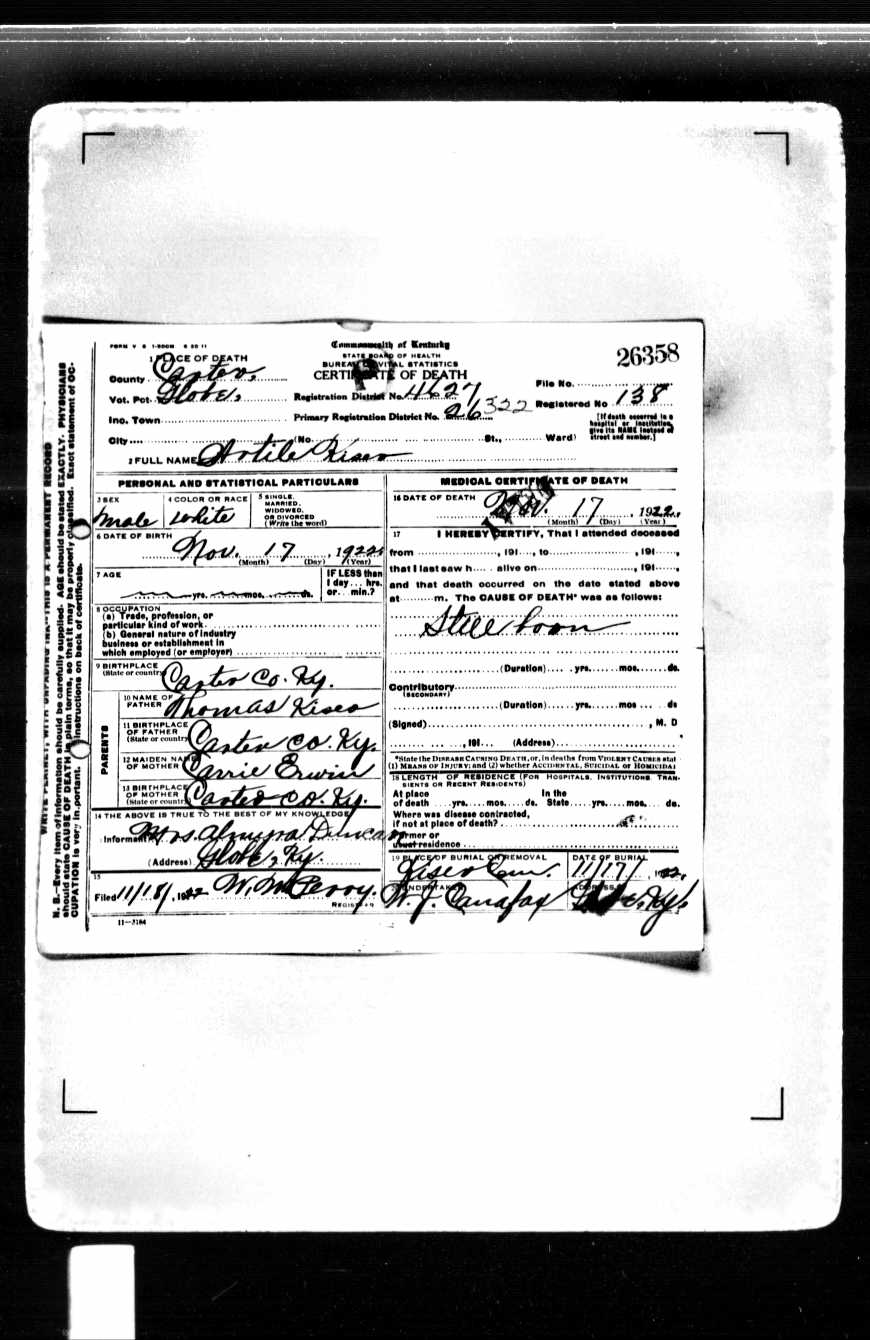 FORM V S 1-500M 8 20 11
Commonwealth of Kentucky
STATE BOARD OF HEALTH
BUREAU OF VITAL STATISTICS
CERTIFICATE OF DEATH
26358
1 PLACE OF DEATH
County Carter,
Vot. Pct. Globe,
Registration District No. 4627
File No.
Inc. Town
Primary Registration District No. 26322
Registered No 138
City (No. St., Ward)
[If death occurred in a hospital or institution, give its NAME instead of street and number.]
2 FULL NAME Kiser
PERSONAL AND STATISTICAL PARTICULARS
3 SEX
male
4 COLOR OR RACE
white
5 SINGLE, MARRIED, WIDOWED, OR DIVORCED (Write the word)
6 DATE OF BIRTH
Nov. 17, 1922
(Month) (Day) (Year)
7 AGE
yrs. mos. ds.
IF LESS than 1 day... hrs. or... min.?
8 OCCUPATION
(a) Trade, profession, or
particular kind of work
(b) General nature of industry
business or establishment in
which employed (or employer)
9 BIRTHPLACE
(State or country) Carter Co. Ky.
PARENTS
10 NAME OF FATHER Thomas Kiser
11 BIRTHPLACE OF FATHER (State or country) Carter Co. Ky.
12 MAIDEN NAME OF MOTHER Carrie Erwin
13 BIRTHPLACE OF MOTHER (State or country) Carter Co. Ky.
14 THE ABOVE IS TRUE TO THE BEST OF MY KNOWLEDGE
(Informant) Mrs. Almyra Duncan
(Address) Globe, Ky.
15
Filed 11/18/, 1922 W. M. Perry.
REGISTRAR
11—3184
MEDICAL CERTIFICATE OF DEATH
16 DATE OF DEATH Nov. 17, 1922.
(Month) (Day) (Year)
17 I HEREBY CERTIFY, That I attended deceased
from , 191..., to , 191....,
that I last saw h.... alive on , 191....,
and that death occurred on the date stated above
at m. The CAUSE OF DEATH* was as follows:
Still born
(Duration) yrs. mos. ds.
Contributory
(SECONDARY)
(Duration) yrs. mos ds
(Signed) , M. D
, 191... (Address)
*State the DISEASE CAUSING DEATH, or, in deaths from VIOLENT CAUSES stat
(1) MEANS OF INJURY; and (2) whether ACCIDENTAL, SUICIDAL or HOMICIDAL
18 LENGTH OF RESIDENCE (FOR HOSPITALS, INSTITUTIONS, TRAN-
SIENTS OR RECENT RESIDENTS)
At place of death yrs. mos. ds. In the State yrs. mos. ds.
Where was disease contracted,
if not at place of death?
Former or
usual residence
19 PLACE OF BURIAL OR REMOVAL
Kiser Cem.
DATE OF BURIAL
11/17/, 1922,
20 UNDERTAKER
W. J.
ADDRESS
Ky.
WRITE PLAINLY, WITH UNFADING INK—THIS IS A PERMANENT RECORD
N. B.—Every item of information should be carefully supplied. AGE should be stated EXACTLY. PHYSICIANS
should state CAUSE OF DEATH in plain terms, so that it may be properly classified. Exact statement of OC-
CUPATION is very important. instructions on back of certificate.